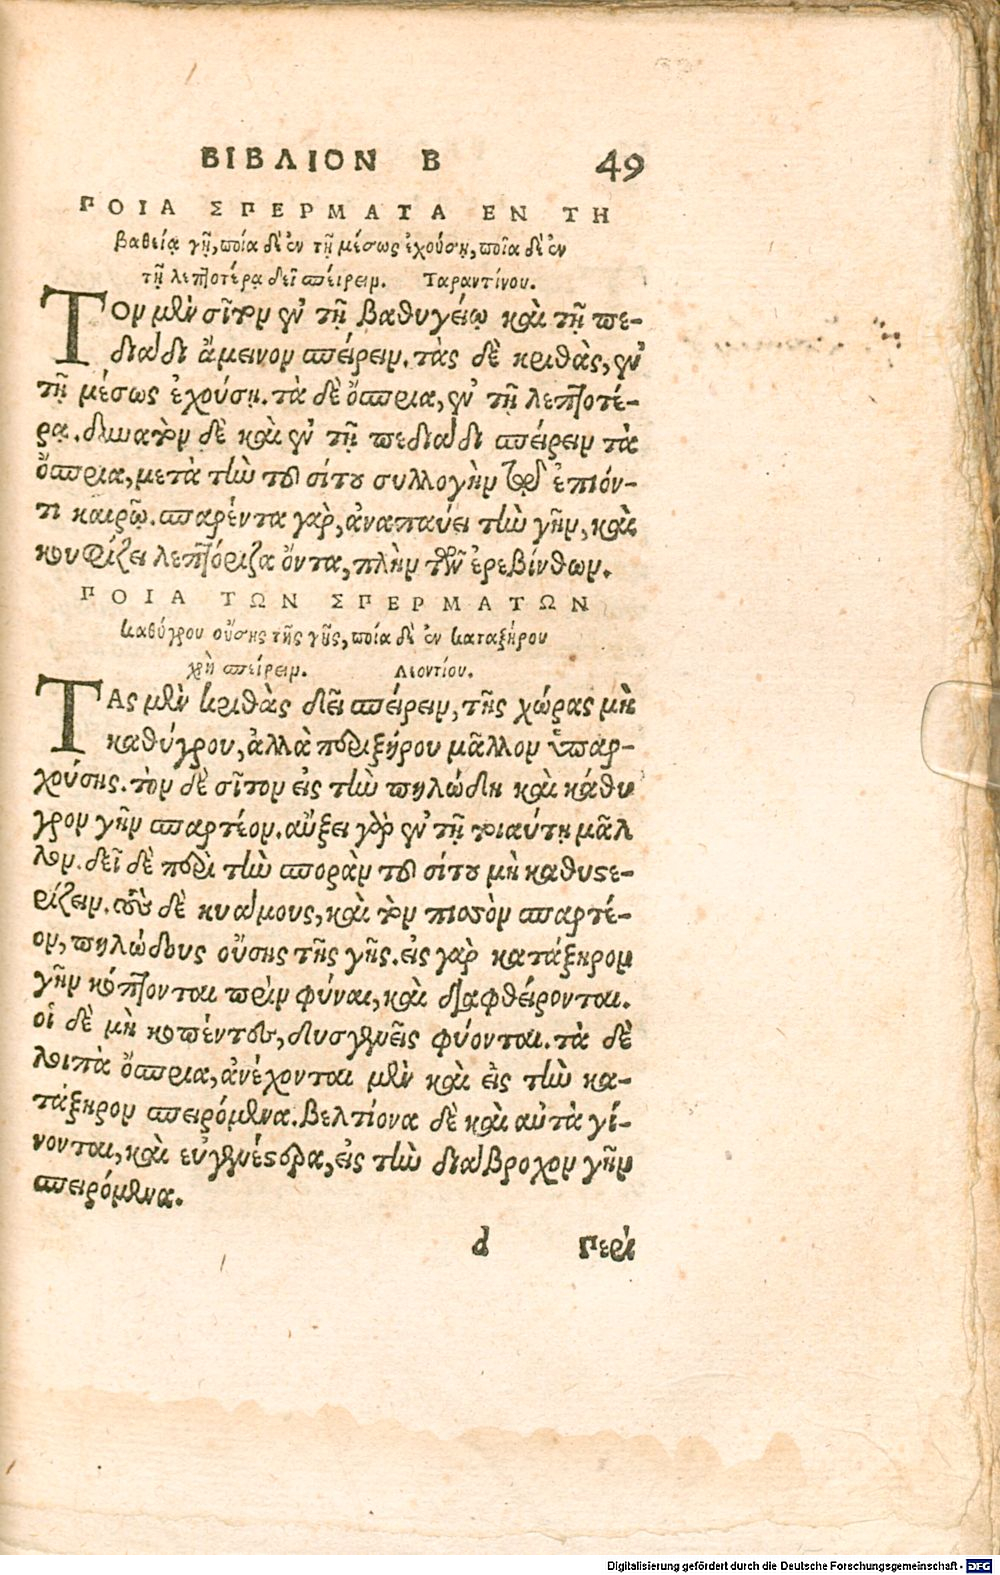 ΒΙΒΛΙΟΝ Β 49
ΠΟΙΑ ΣΠΕΡΜΑΤΑ ΕΝ ΤΗ
βαθείᾳ γῇ, ποία δὲ ἐν τῇ μέσως ἐχούσῃ, ποῖα δὲ ἐν
τῇ λεπτοτέρᾳ δεῖ σπείρειν. Ταραντίνου.
ΤΟν μὲν σῖτον ἐν τῇ βαθυγείῳ καὶ τῇ πε-
διάδι ἄμεινον σπείρειν. τὰς δὲ κριθὰς, ἐν
τῇ μέσως ἐχούσῃ. τὰ δὲ ὄσπρια, ἐν τῇ λεπτοτέ-
ρᾳ. δυνατὸν δὲ καὶ ἐν τῇ πεδιάδι σπείρειν τὰ
ὄσπρια, μετὰ τὴν τοῦ σίτου συλλογὴν τῷ ἐπιόν-
τι καιρῷ. σπαρέντα γὰρ, ἀναπαύει τὴν γῆν, καὶ
κουφίζει λεπτόριζα ὄντα, πλὴν τῶν ἐρεβίνθων.
ΠΟΙΑ ΤΩΝ ΣΠΕΡΜΑΤΩΝ
καθύγρου οὔσης τῆς γῆς, ποία δὲ ἐν καταξήρου
χρὴ σπείρειν. Λεοντίου.
ΤΑς μὲν κριθὰς δεῖ σπείρειν, τῆς χώρας μὴ
καθύγρου, ἀλλὰ περιξήρου μᾶλλον ὑπαρ-
χούσης. τὸν δὲ σῖτον εἰς τὴν πηλώδη καὶ κάθυ
γρον γῆν σπαρτέον. αὔξει γὰρ ἐν τῇ τοιαύτῃ μᾶλ
λον. δεῖ δὲ περὶ τὴν σπορὰν τοῦ σίτου μὴ καθυστε-
ρίζειν. τοὺς δὲ κυάμους, καὶ τὸν πισσὸν σπαρτέ-
ον, πηλώδους οὔσης τῆς γῆς. εἰς γὰρ κατάξηρον
γῆν κόπτονται πρὶν φύναι, καὶ διαφθείρονται.
οἱ δὲ μὴ κοπέντες, δυσγενεῖς φύονται. τὰ δὲ
λοιπὰ ὄσπρια, ἀνέχονται μὲν καὶ εἰς τὴν κα-
τάξηρον σπειρόμενα. βελτίονα δὲ καὶ αὐτὰ γί-
νονται, καὶ εὐγενέστερα, εἰς τὴν διάβροχον γῆν
σπειρόμενα.
d Περὶ
Digitalisierung gefördert durch die Deutsche Forschungsgemeinschaft - DFG